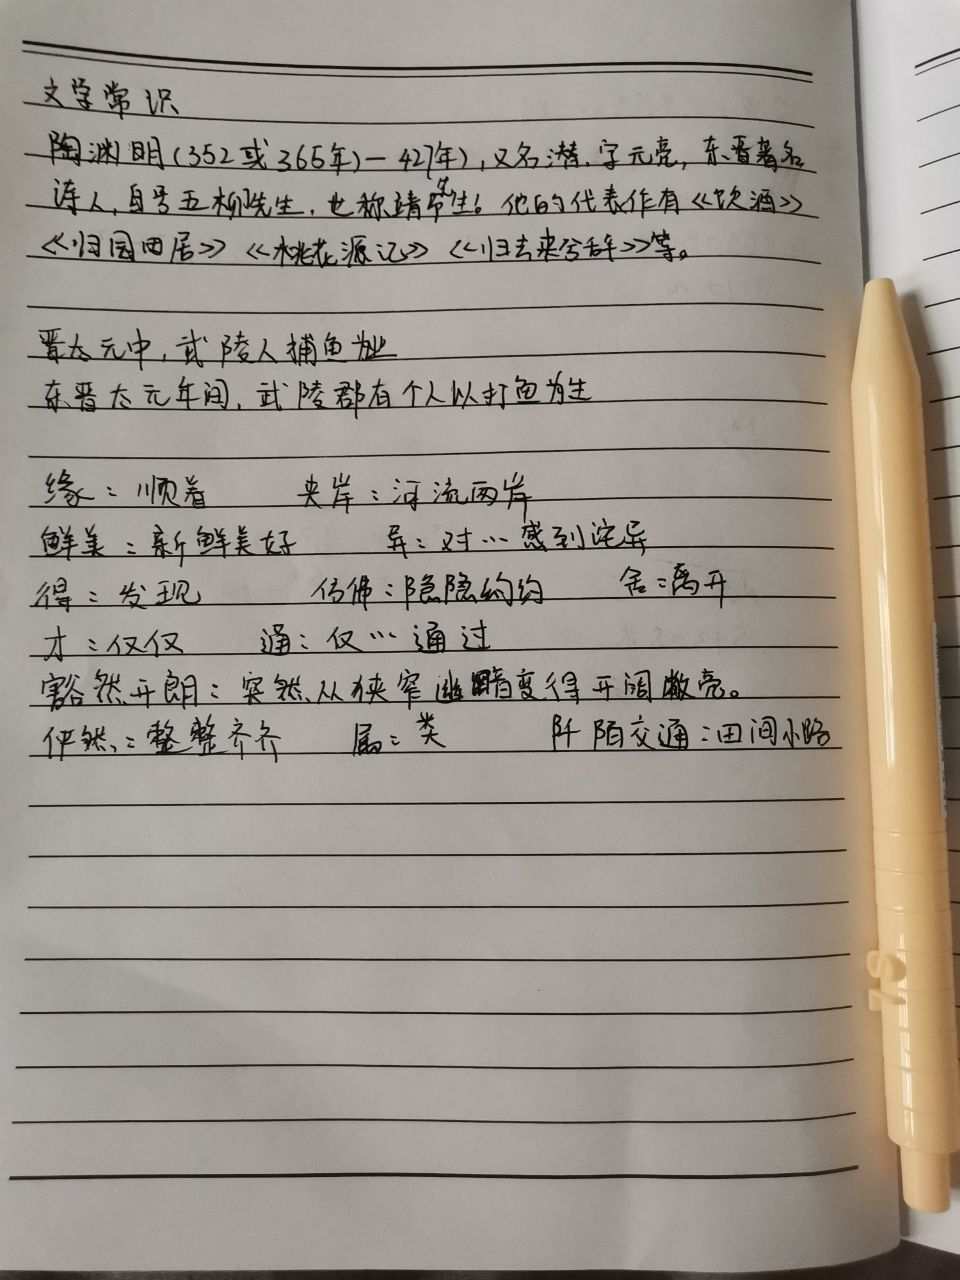 文学常识
陶渊明(352或365年)—427年),又名潜,字元亮,东晋著名
诗人,自号五柳先生,也称靖节先生。他的代表作有《饮酒》
《归园田居》《桃花源记》《归去来兮辞》等。
晋太元中,武陵人捕鱼为业
东晋太元年间,武陵郡有个人以打鱼为生
缘:顺着 夹岸:河流两岸
鲜美:新鲜美好 异:对…感到诧异
得:发现 仿佛:隐隐约约 舍:离开
才:仅仅 通:仅…通过
豁然开朗:突然从狭窄幽暗变得开阔敞亮。
俨然:整整齐齐 属:类 阡陌交通:田间小路